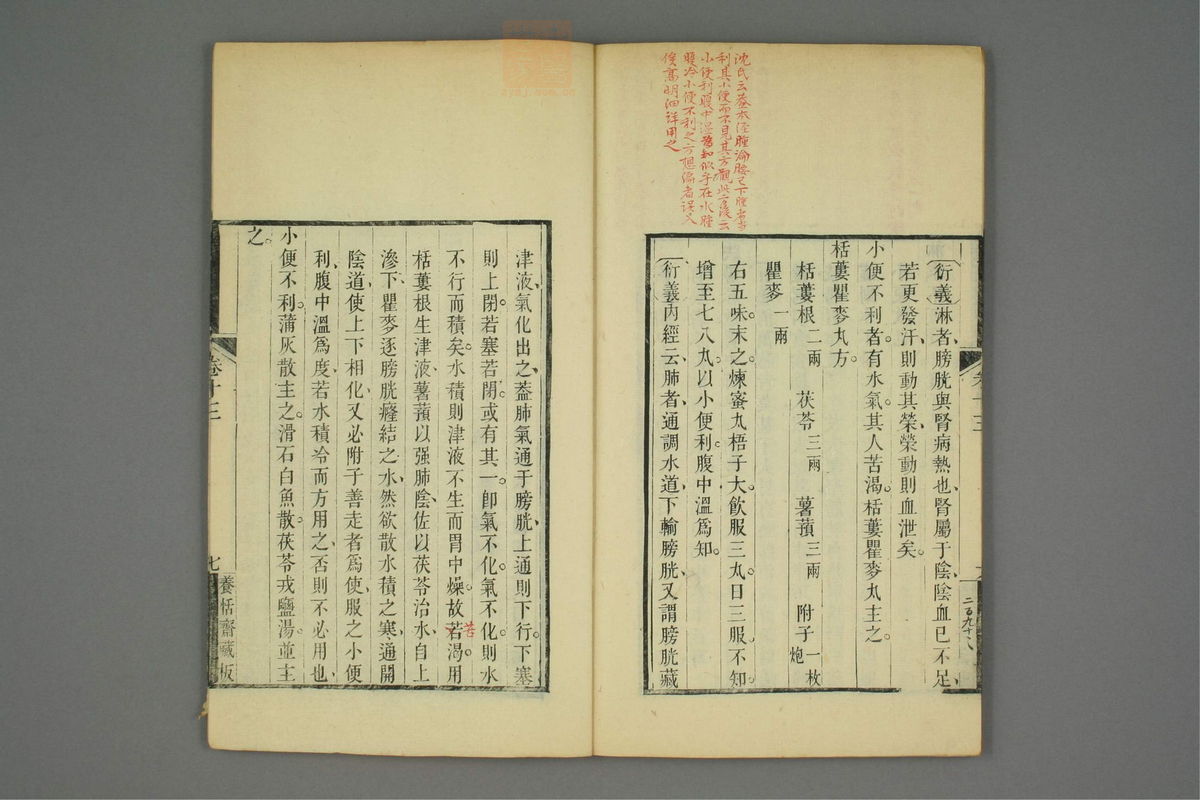 沈氏云蓋本經腫論腰已下腫當
利其小便而不見其方觀此方後云
小便利腹中溫爲知似乎在水腫
腹冷小便不利之方想編者誤又
俟高明細詳用之
衍義淋者、膀胱與腎病熱也、腎屬于陰、陰血已不足、
若更發汗、則動其榮、榮動則血泄矣。
小便不利者、有水氣、其人苦渴、栝蔞瞿麥丸主之。
栝蔞瞿麥丸方。
栝蔞根二兩 茯苓三兩 薯蕷三兩 附子一枚炮
瞿麥一兩
右五味、末之、煉蜜丸梧子大、飲服三丸、日三服、不知、
增至七八丸、以小便利、腹中溫爲知。
衍義內經云、肺者、通調水道、下輸膀胱、又謂膀胱藏
二百九十八
津液、氣化出之、蓋肺氣通于膀胱、上通則下行。下塞
則上閉。若塞若閉。或有其一、卽氣不化。氣不化。則水
不行而積矣。水積則津液不生而胃中燥。故若渴。用
苦
栝蔞根生津液、薯蕷以强肺陰、佐以茯苓治水、自上
滲下、瞿麥逐膀胱癃結之水、然欲散水積之寒、通開
陰道、使上下相化、又必附子善走者爲使、服之小便
利、腹中溫爲度、若水積冷而方用之、否則不必用也、
小便不利。蒲灰散主之。滑石白魚散。茯苓戎鹽湯。竝主
之。
卷十三
七
養恬齋藏板